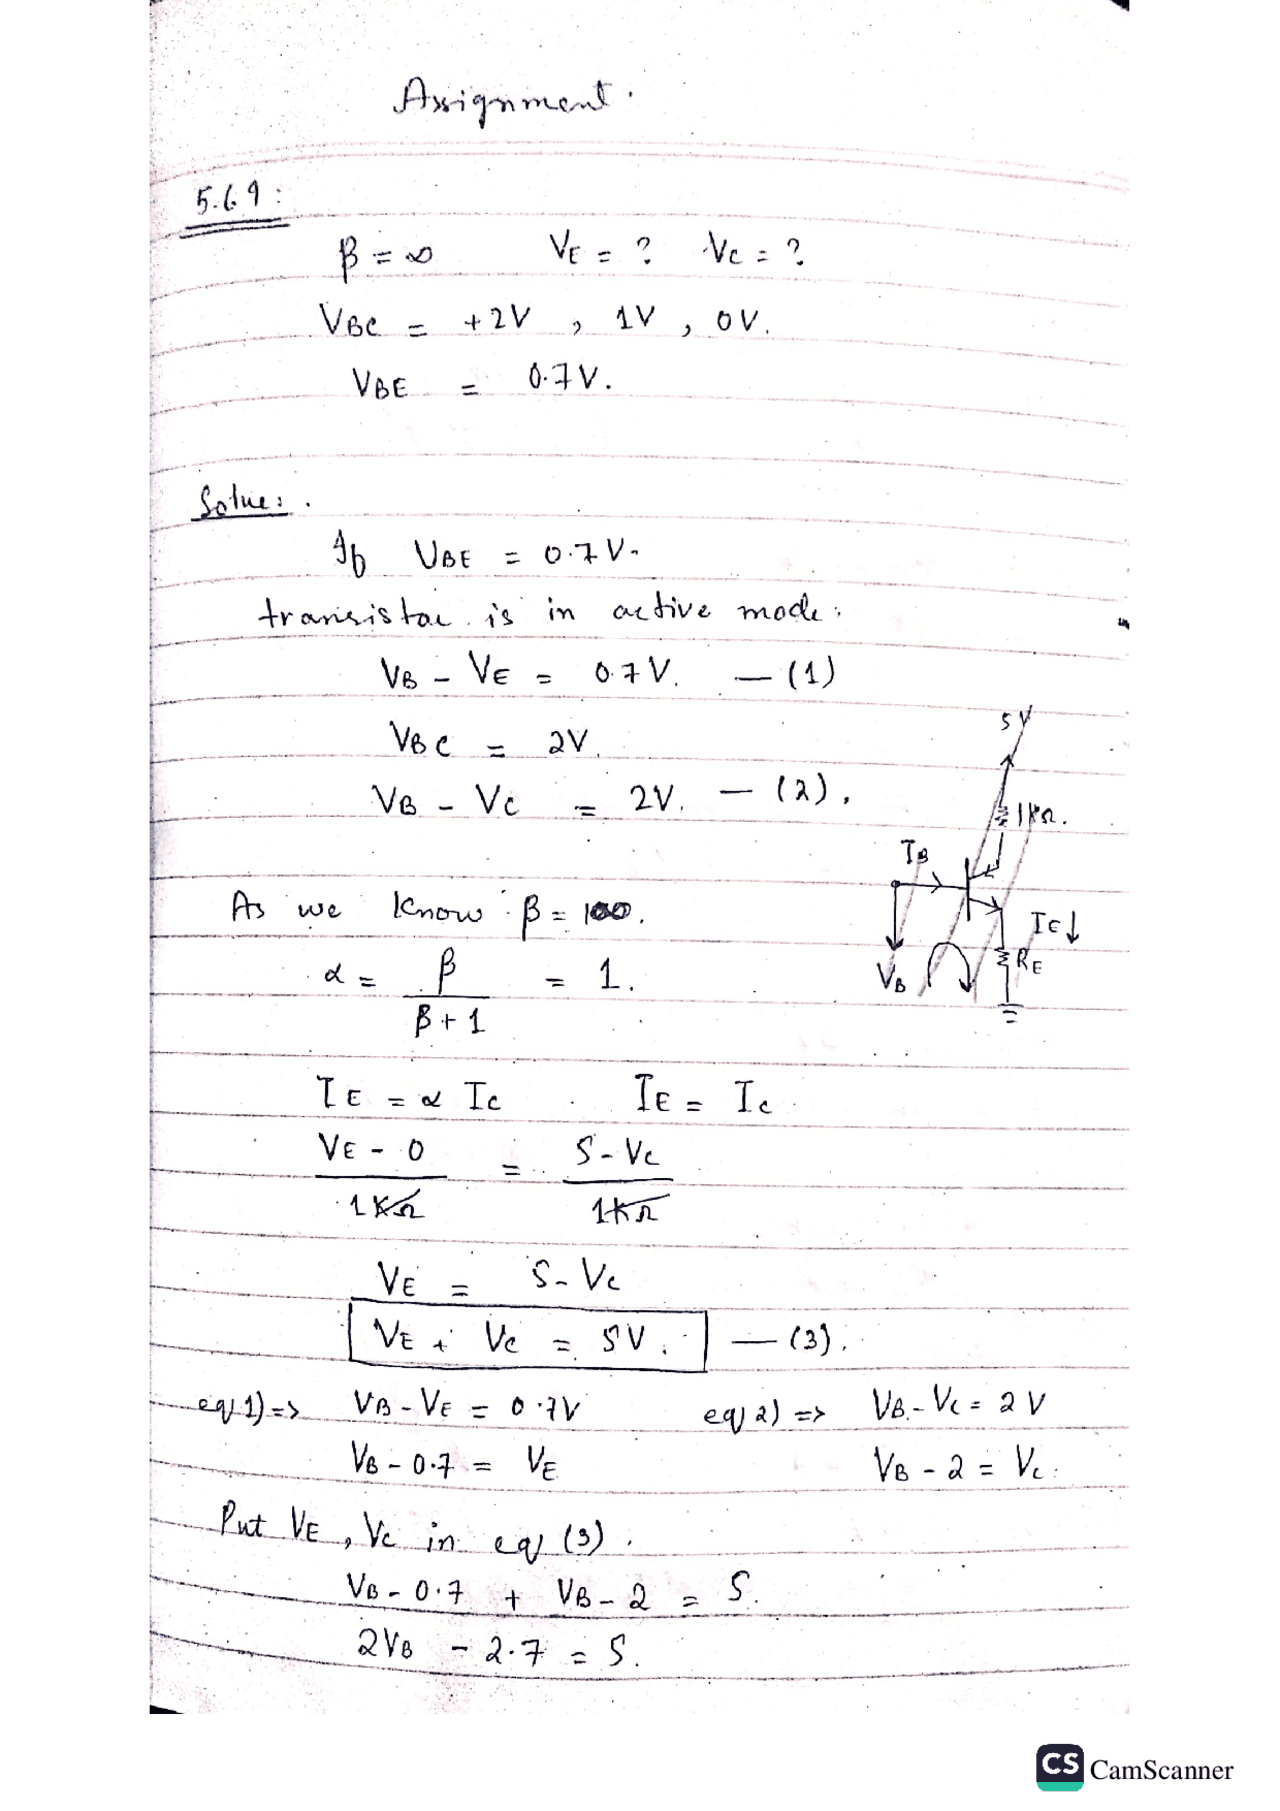 Assignment.
5.69:
β = ∞ VE = ? VC = ?
VBC = +2V , 1V , 0V.
VBE = 0.7V.
Solve:.
If VBE = 0.7V.
transistor is in active mode.
VB - VE = 0.7V. — (1)
VBC = 2V.
VB - VC = 2V. — (2).
5V
1kΩ.
IB
IE↓
RE
VB
As we know β = 100.
α = β / β+1 = 1.
IE = α IC IE = IC
VE - 0 / 1KΩ = 5 - VC / 1KΩ
VE = 5 - VC
VE + VC = 5V. — (3).
eq 1) => VB - VE = 0.7V eq 2) => VB - VC = 2V
VB - 0.7 = VE VB - 2 = VC.
Put VE , VC in eq (3).
VB - 0.7 + VB - 2 = 5.
2VB - 2.7 = 5.
CS CamScanner